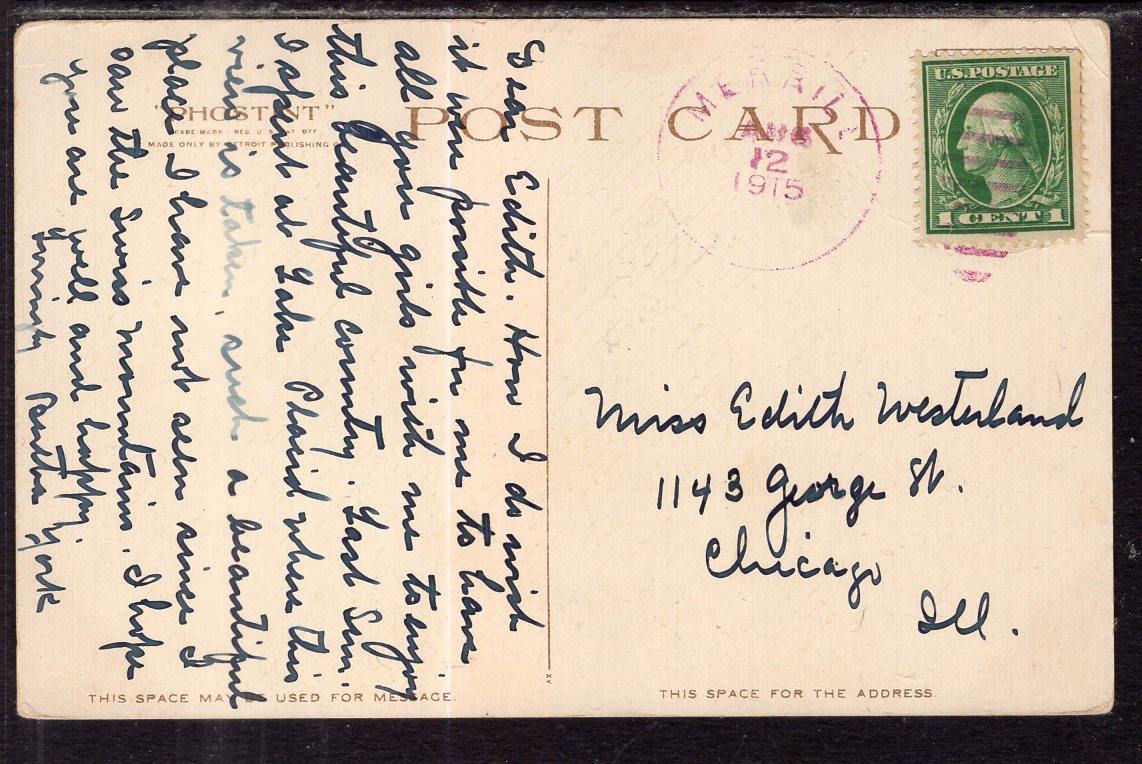 "PHOSTINT"
TRADE MARK - REG. U.S. PAT. OFF.
MADE ONLY BY DETROIT PUBLISHING
POST CARD
MERRILL
AUG
12
1915
U.S. POSTAGE
1 CENT 1
Dear Edith. How I do wish
it were possible for me to have
all you girls with me to enjoy
this beautiful country. Last Sun.
I spent at Lake Placid where this
view is taken, such a beautiful
place I have not seen since I
saw the Swiss mountains. I hope
you are well and happy.
Lovingly
York
Miss Edith Westerland
1143 George St.
Chicago
Ill.
XV
THIS SPACE MAY BE USED FOR MESSAGE.
THIS SPACE FOR THE ADDRESS.